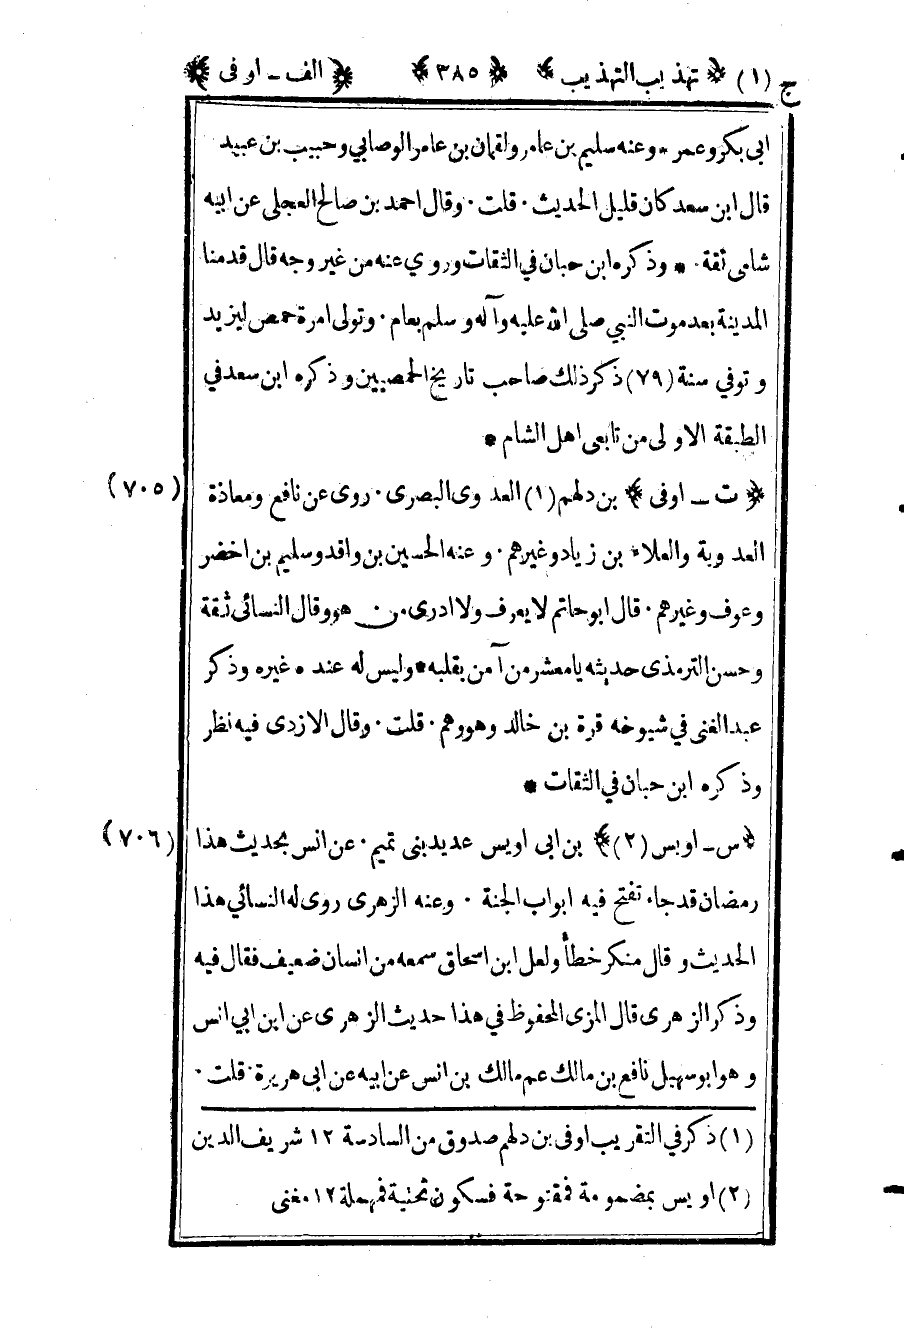 ج (١) ﴿ تهذيب التهذيب ﴾ ﴿ ٣٨٥ ﴾ ﴿ الف ــ اوفى ﴾
ابى بكر وعمر * وعنه سليم بن عامر ولقمان بن عامر الوصابي وحبيب بن عبيد
قال ابن سعد كان قليل الحديث ٠ قلت ٠ وقال احمد بن صالح العجلى عن ابيه
شامى ثقة ٠ * وذكره ابن حبان في الثقات وروي عنه من غير وجه قال قدمنا
المدينة بعد موت النبي صلى الله عليه وآله وسلم بعام ٠ وتولى امرة حمص ليزيد
وتوفي سنة (٧٩) ذكر ذلك صاحب تاريخ الحمصيين وذكره ابن سعد في
الطبقة الاولى من تابعى اهل الشام *
﴿ ت ــ اوفى ﴾ بن دلهم (١) العدوى البصرى ٠ روى عن نافع ومعاذة (٧٠٥)
العدوية والعلاء بن زياد وغيرهم ٠ وعنه الحسين بن واقد وسليم بن اخضر
وعوف وغيرهم ٠ قال ابو حاتم لا يعرف ولا ادرى من هو وقال النسائى ثقة
وحسن الترمذى حديثه يا معشر من آمن بقلبه * وليس له عنده غيره وذكر
عبد الغنى في شيوخه قرة بن خالد وهو وهم ٠ قلت ٠ وقال الازدى فيه نظر
وذكره ابن حبان في الثقات *
﴿ س ــ اويس (٢) ﴾ بن ابى اويس عديد بنى تميم ٠ عن انس بحديث هذا (٧٠٦)
رمضان قد جاء تفتح فيه ابواب الجنة ٠ وعنه الزهرى روى له النسائي هذا
الحديث وقال منكر خطأ ولعل ابن اسحاق سمعه من انسان ضعيف فقال فيه
وذكر الزهرى قال المزى المحفوظ في هذا حديث الزهرى عن ابن ابي انس
وهو ابو سهيل نافع بن مالك عم مالك بن انس عن ابيه عن ابى هريرة ٠ قلت ٠
(١) ذكر في التقريب اوفى بن دلهم صدوق من السادسة ١٢ شريف الدين
(٢) اويس بمضمومة فمفتوحة فسكون تحتية فمهملة ١٢ مغنى